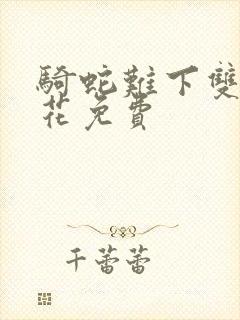 騎蛇難下雙
花免費
千蕾蕾